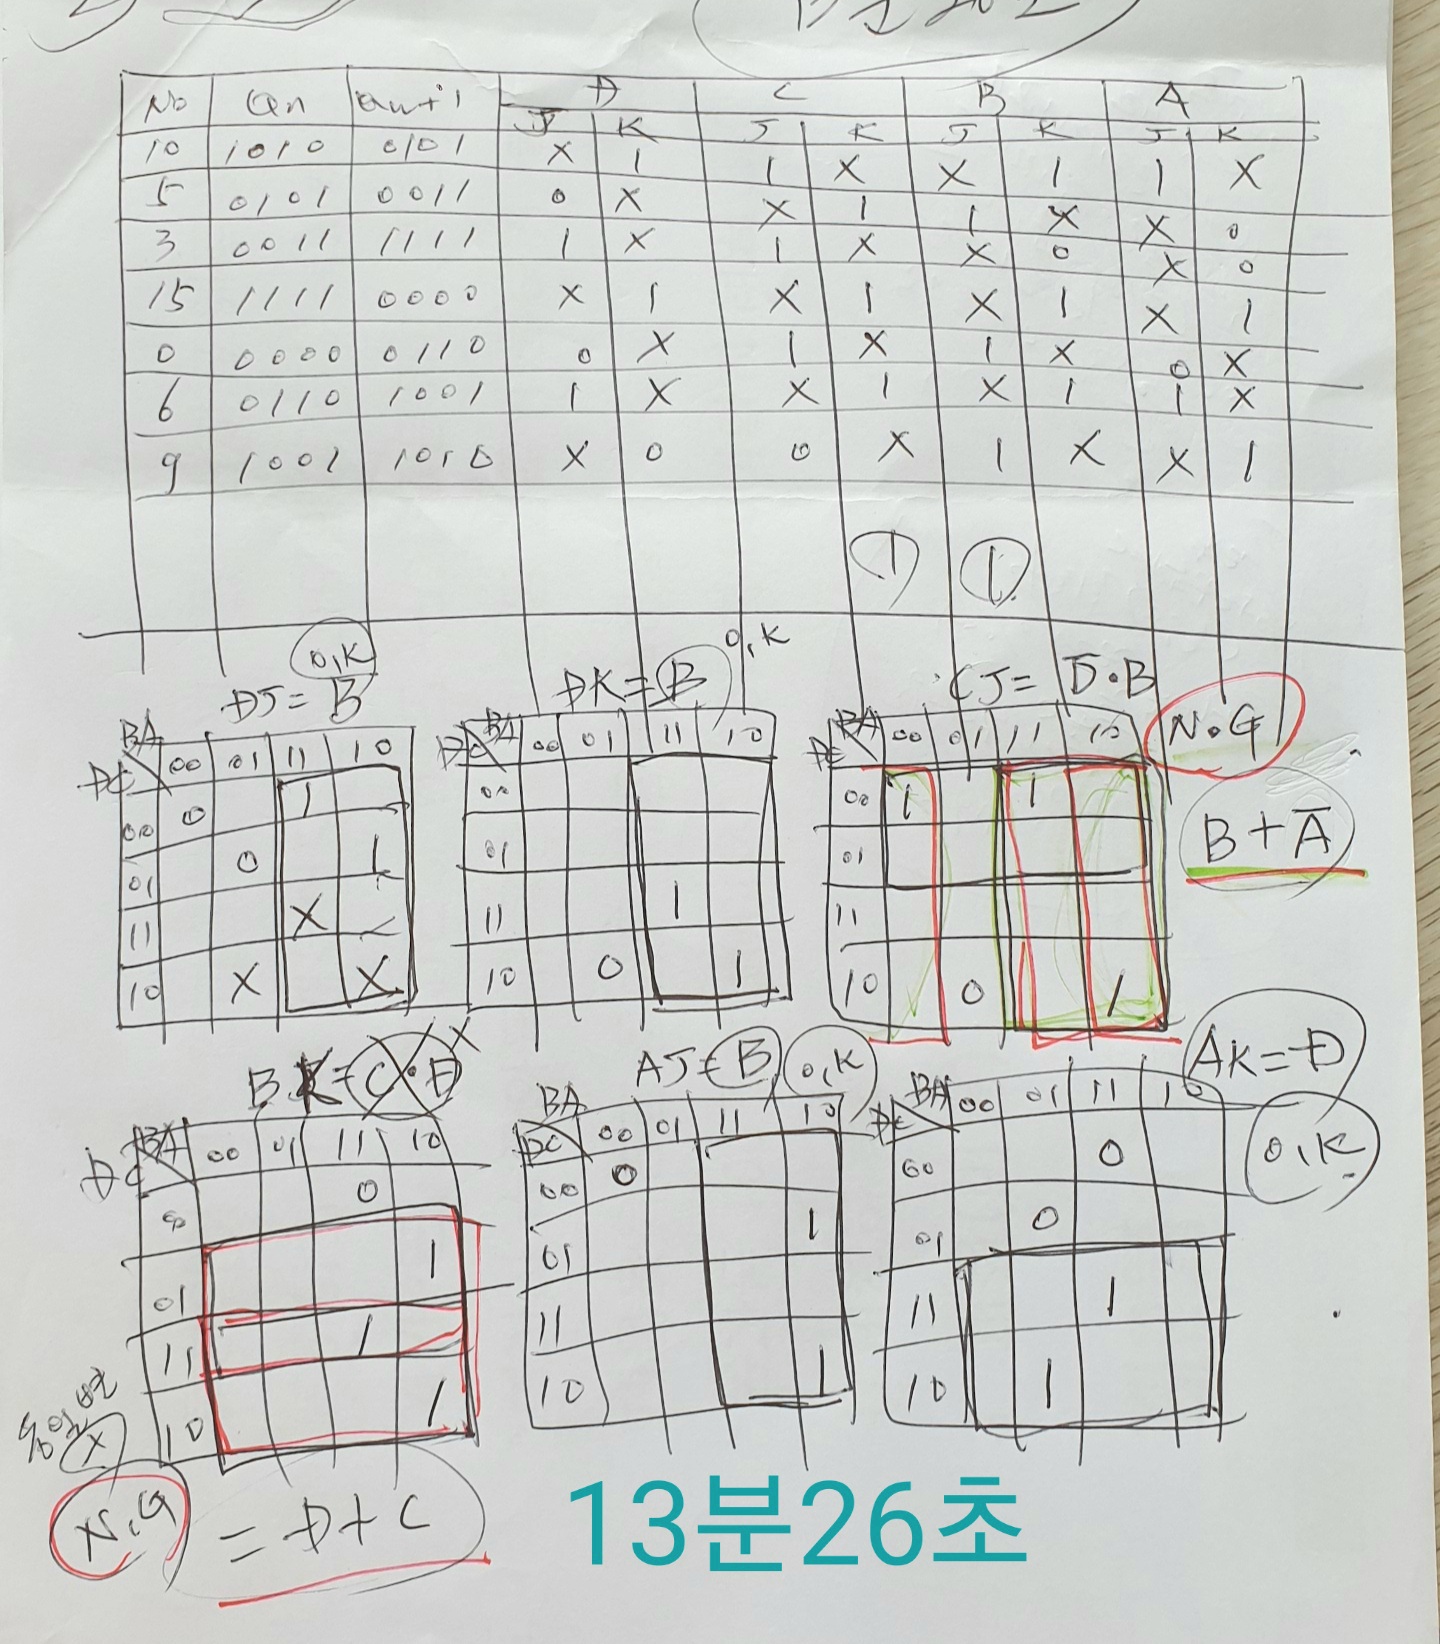 No Qn Qn+1 D C B A
J K J K J K J K
10 1010 0101 X 1 1 X X 1 1 X
5 0101 0011 0 X X 1 1 X X 0
3 0011 1111 1 X 1 X X 0 X 0
15 1111 0000 X 1 X 1 X 1 X 1
0 0000 0110 0 X 1 X 1 X 0 X
6 0110 1001 1 X X 1 X 1 1 X
9 1001 1010 X 0 0 X 1 X X 1
1 1
O,K O,K
DJ = B DK = B CJ = D̅·B N.G
BA 00 01 11 10
DC
00 0 1
01 0 1
11 X
10 X X
BA 00 01 11 10
DC
00
01
11 1
10 0 1
BA 00 01 11 10
DC
00 1 1
01
11
10 0 1
B + A̅
BK = C·D X AJ = B O,K AK = D O,K
BA 00 01 11 10
DC
00 0
01 1
11 1
10 1
BA 00 01 11 10
DC
00 0
01 1
11
10 1
BA 00 01 11 10
DC
00 0
01 0
11 1
10 1
X
N.G = D + C
13분26초